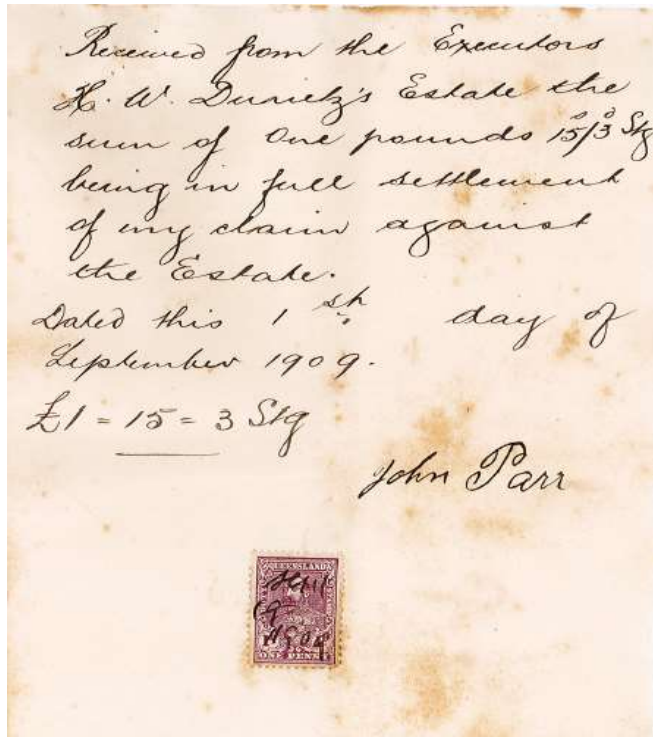 Received from the Executors
H. W. Durietz's Estate the
sum of One pounds 15s/3d Stg
being in full settlement
of my claim against
the Estate.
Dated this 1st day of
September 1909.
£1 = 15 = 3 Stg
John Parr
QUEENSLAND
STAMP DUTY
ONE PENNY